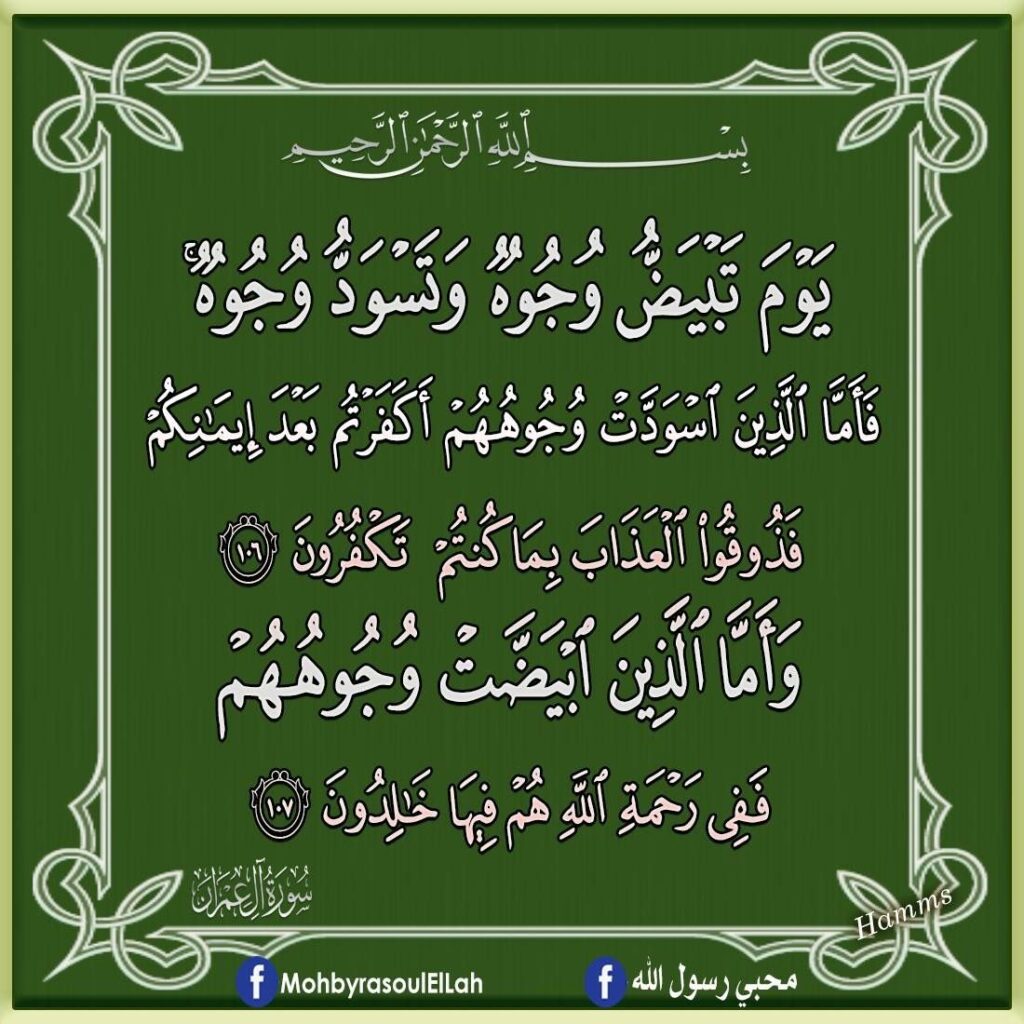 بِسْمِ ٱللَّهِ ٱلرَّحْمَٰنِ ٱلرَّحِيمِ
يَوْمَ تَبْيَضُّ وُجُوهٌ وَتَسْوَدُّ وُجُوهٌ ۚ
فَأَمَّا ٱلَّذِينَ ٱسْوَدَّتْ وُجُوهُهُمْ أَكَفَرْتُم بَعْدَ إِيمَٰنِكُمْ
فَذُوقُوا۟ ٱلْعَذَابَ بِمَا كُنتُمْ تَكْفُرُونَ ١٠٦
وَأَمَّا ٱلَّذِينَ ٱبْيَضَّتْ وُجُوهُهُمْ
فَفِى رَحْمَةِ ٱللَّهِ هُمْ فِيهَا خَٰلِدُونَ ١٠٧
سُورَةُ آلِ عِمْرَانَ
Hamms
محبي رسول الله
MohbyrasoulElLah